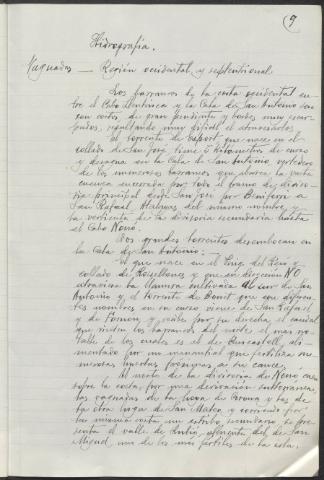 (9
Hidrografía.
Vaguadas — Región occidental y septentrional
Los barrancos de la costa occidental en-
tre el Cabo Llentrisca y la Cala de San Antonio son
son cortos de gran pendiente y bordes muy escar-
pados, resultando muy difícil el atravesarlos.
El torrente de que nace en el
collado de San José tiene 6 kilometros de curso
y desagua en la Cala de San Antonio vertedero
de los numerosos barrancos que abarca la vasta
cuenca encerrada por todo el tramo de diviso-
ria principal desde San José por
San Rafael, del mismo nombre y
la vertiente de la divisoria secundaria hasta
el Cabo Nonó.
Dos grandes torrentes desembocan en
la Cala de San Antonio:
el que nace en el Puig del Rey y
collado de y que en dirección NO
atraviesa la llanura cultivada al sur de San
Antonio y el torrente de que con diferen-
tes nombres en su curso viene de San Rafael
y de y recibe por su derecha el caudal
que rinden los barrancos del norte el mas no-
table de los cuales es el de Buscastell, ali-
mentado por un manantial que fertiliza nu-
merosas huertas proximas a su cauce.
Al norte de la divisoria de Nonó cae
sobre la costa, por una derivación subterranea,
las vaguadas de la y las de
la otra vega de San Mateo, y corriendo por
la misma costa un estribo secundario se pre-
senta el valle de afluente del de San
Miguel, uno de los mas fertiles de la isla.